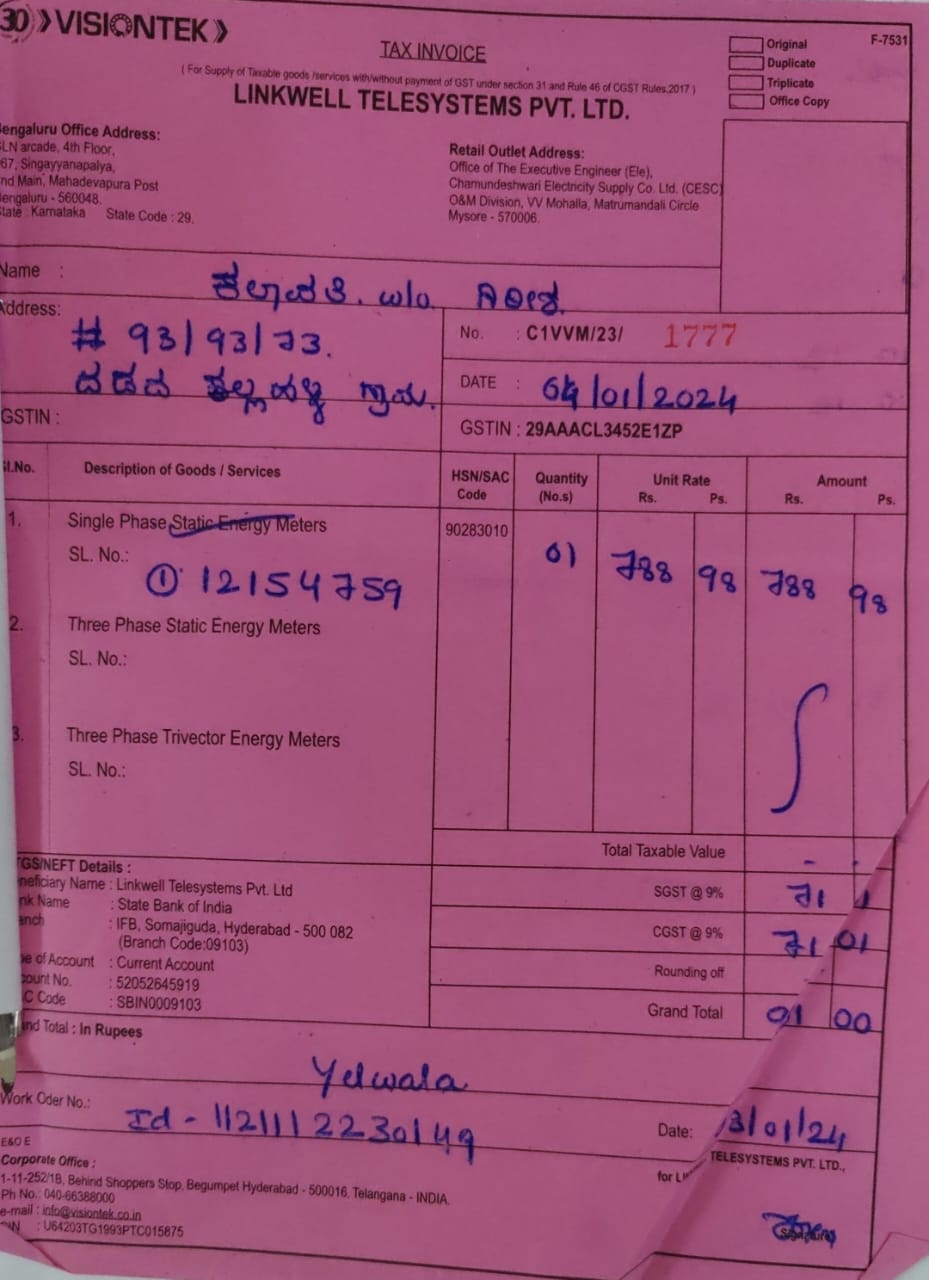 30 VISIONTEK
TAX INVOICE
Original
Duplicate
Triplicate
Office Copy
F-7531
( For Supply of Taxable goods /services with/without payment of GST under section 31 and Rule 46 of CGST Rules,2017 )
LINKWELL TELESYSTEMS PVT. LTD.
engaluru Office Address:
LN arcade, 4th Floor,
67, Singayyanapalya,
nd Main, Mahadevapura Post
engaluru - 560048.
tate : Karnataka State Code : 29.
Retail Outlet Address:
Office of The Executive Engineer (Ele),
Chamundeshwari Electricity Supply Co. Ltd. (CESC)
O&M Division, VV Mohalla, Matrumandali Circle
Mysore - 570006.
Name :
w/o.
Address:
# 93/93/73.
ಗ್ರಾಮ.
No. : C1VVM/23/ 1777
DATE : 04/01/2024
GSTIN :
GSTIN : 29AAACL3452E1ZP
Sl.No. Description of Goods / Services HSN/SAC Code Quantity (No.s) Unit Rate Rs. Ps. Amount Rs. Ps.
1. Single Phase Static Energy Meters 90283010 01 788 98 788 98
SL. No.:
① 12154759
2. Three Phase Static Energy Meters
SL. No.:
3. Three Phase Trivector Energy Meters
SL. No.:
Total Taxable Value
SGST @ 9% 71
CGST @ 9% 71 01
Rounding off
Grand Total 00
TGS/NEFT Details :
neficiary Name : Linkwell Telesystems Pvt. Ltd
nk Name : State Bank of India
anch : IFB, Somajiguda, Hyderabad - 500 082
(Branch Code:09103)
pe of Account : Current Account
count No. : 52052645919
C Code : SBIN0009103
nd Total : In Rupees
Yelwala
Work Oder No.:
Id - 112111 2230149
Date: 13/01/24
E&O E
Corporate Office :
1-11-252/1B, Behind Shoppers Stop, Begumpet Hyderabad - 500016, Telangana - INDIA.
Ph No.: 040-66388000
e-mail : info@visiontek.co.in
: U64203TG1993PTC015875
for LI TELESYSTEMS PVT. LTD.,